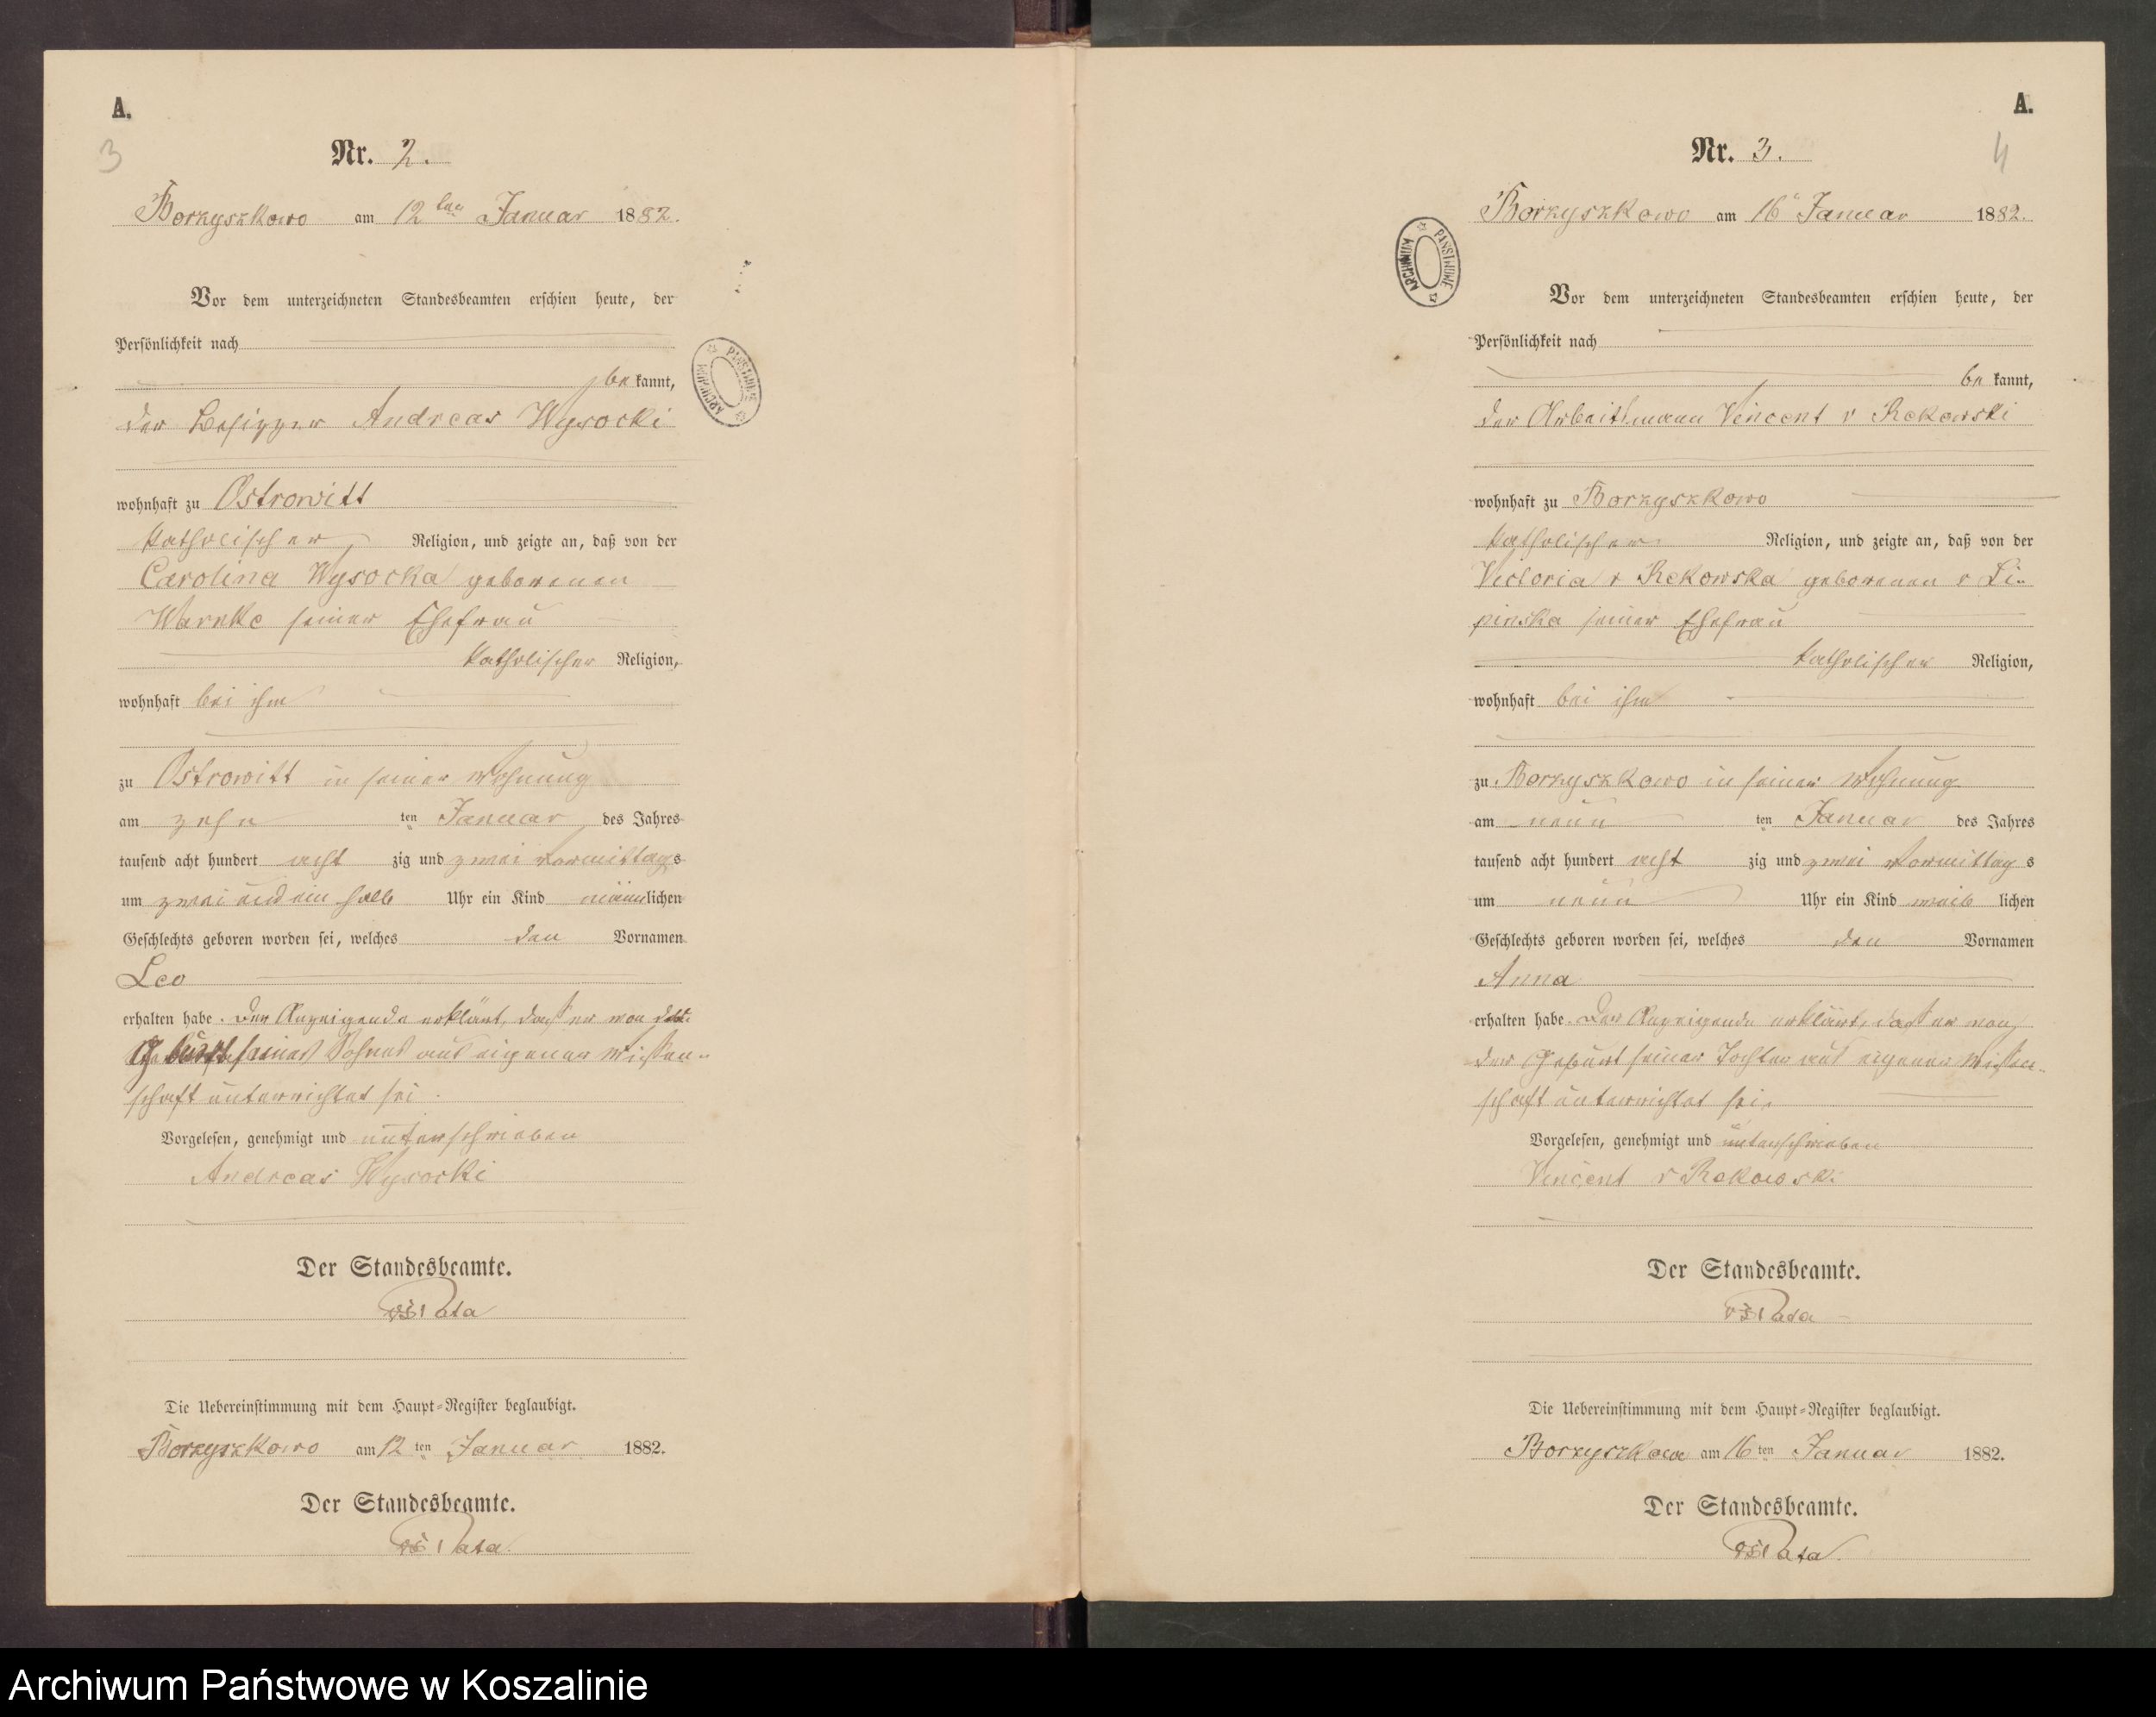 A.
3
Nr. 2.
Borzyszkowo am 12 ten Januar 1882.
Vor dem unterzeichneten Standesbeamten erschien heute, der
Persönlichkeit nach
be kannt,
der Besitzer Andreas Wysocki
wohnhaft zu Ostrowitt
katholischer Religion, und zeigte an, daß von der
Carolina Wysocka geborenen
Warnke seiner Ehefrau
katholischer Religion,
wohnhaft bei ihm
zu Ostrowitt in seiner Wohnung
am zehn ten Januar des Jahres
tausend acht hundert acht zig und zwei Vormittags
um zwei und ein halb Uhr ein Kind männlichen
Geschlechts geboren worden sei, welches den Vornamen
Leo
erhalten habe. Der Anzeigende erklärt, daß er von der
Geburt seines Sohnes aus eigener Wissen-
schaft unterrichtet sei.
Vorgelesen, genehmigt und unterschrieben
Andreas Wysocki
Der Standesbeamte.
Die Uebereinstimmung mit dem Haupt-Register beglaubigt.
Borzyszkowo am 12 ten Januar 1882.
Der Standesbeamte.
ARCHIWUM PAŃSTWOWE
A.
4
Nr. 3.
Borzyszkowo am 16 Januar 1882.
Vor dem unterzeichneten Standesbeamten erschien heute, der
Persönlichkeit nach
be kannt,
der Arbeitsmann Vincent v Rekowski
wohnhaft zu Borzyszkowo
katholischer Religion, und zeigte an, daß von der
Victoria v Rekowska geborenen v Li-
pinska seiner Ehefrau
katholischer Religion,
wohnhaft bei ihm
zu Borzyszkowo in seiner Wohnung
am neun ten Januar des Jahres
tausend acht hundert acht zig und zwei Vormittag s
um neun Uhr ein Kind weib lichen
Geschlechts geboren worden sei, welches den Vornamen
Anna
erhalten habe. Der Anzeigende erklärt, daß er von
der Geburt seiner Tochter aus eigener Wissen-
schaft unterrichtet sei.
Vorgelesen, genehmigt und unterschrieben
Vincent v Rekowski
Der Standesbeamte.
Die Uebereinstimmung mit dem Haupt-Register beglaubigt.
Borzyszkowo am 16 ten Januar 1882.
Der Standesbeamte.
ARCHIWUM PAŃSTWOWE
Archiwum Państwowe w Koszalinie